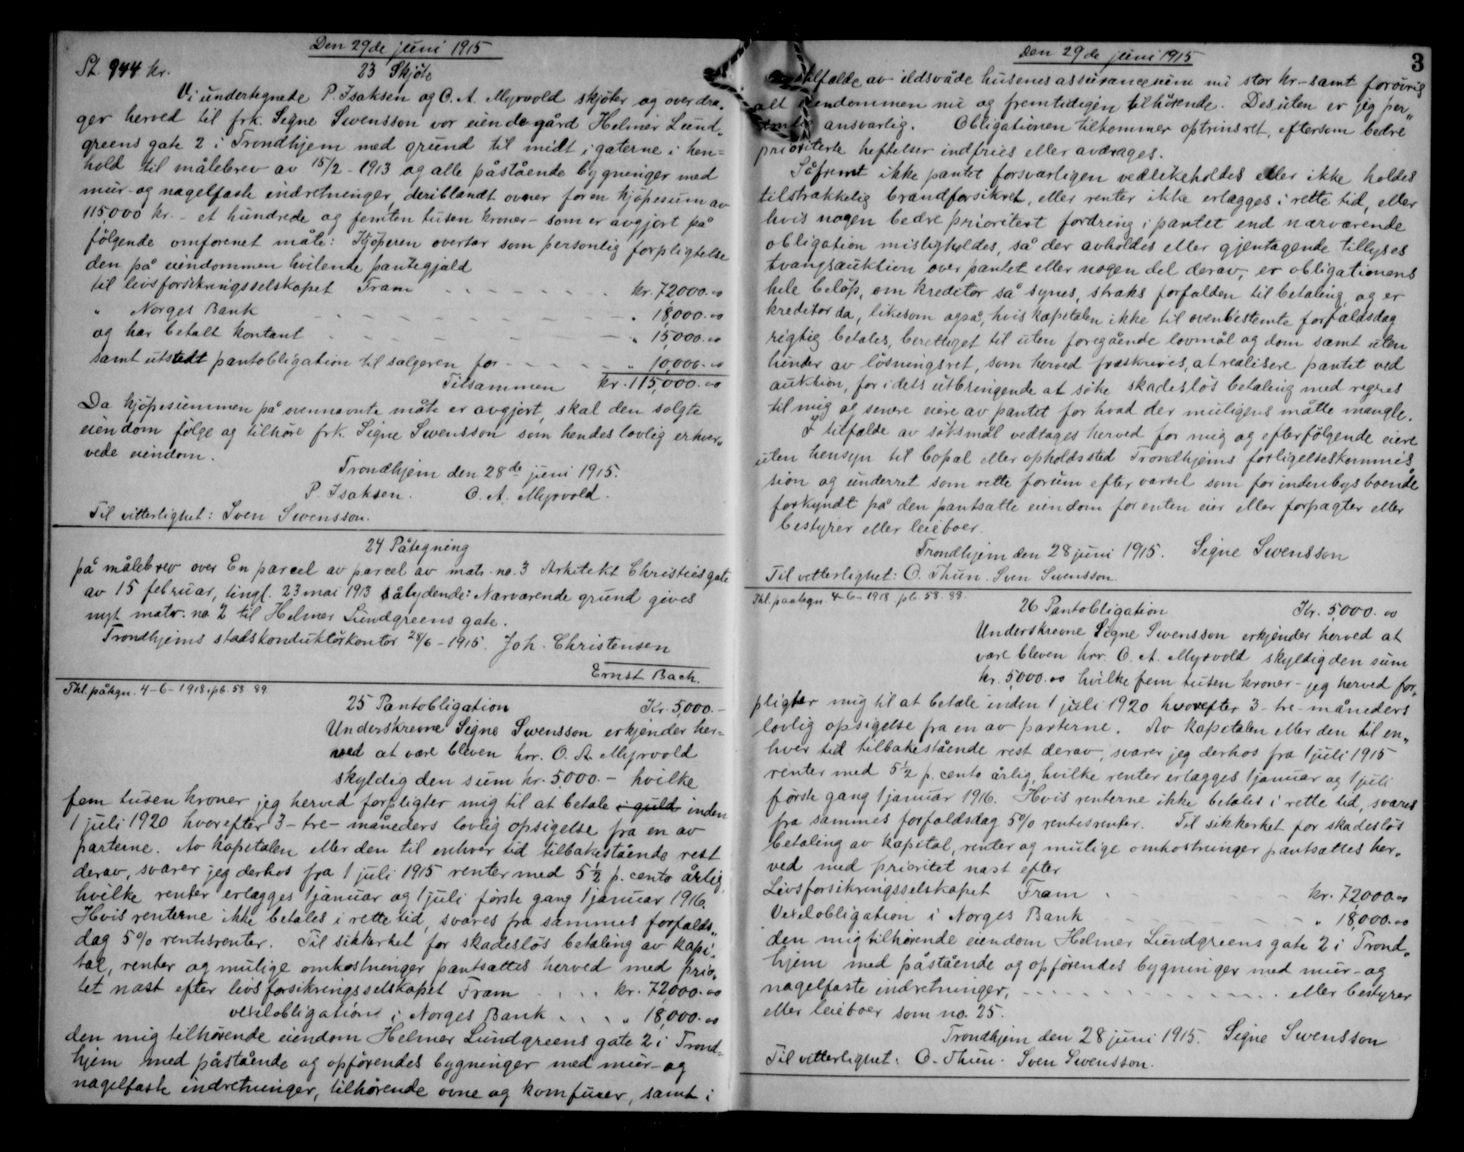 Den 29de juni 1915
St. 944 kr.
23 Skjöte
Vi undertegnede P. Isaksen og O. A. Myrvold skjöter og overdra=
ger herved til frk. Signe Swensson vor eiendo gård Helmer Lund„
greens gate 2 i Trondhjem med grund til midt i gaterne i hen=
hold til målebrev av 15/2 - 1913 og alle påstående bygninger med
mur- og nagelfaste indretninger, deriblandt ovner for en kjöpesum av
115000 kr. - et hundrede og femten tusen kroner - som er avgjort på
følgende omforenet måte: Kjöperen overtar som personlig forpligtelse
den på eiendommen hvilende pantegjæld
til livsforsikringsselskapet Fram kr. 72000.00
" Norges Bank " 18,000.00
og har betalt kontant " 15,000.00
samt utstedt pantobligation til sælgeren for " 10,000.00
Tilsammen kr. 115,000.00
Da kjöpesummen på ovennævnte måte er avgjort, skal den solgte
eiendom følge og tilhöre frk. Signe Swensson som hendes lovlig erhver„
vede eiendom.
Trondhjem den 28de juni 1915.
P. Isaksen. O. A. Myrvold.
Til vitterlighet: Sven Swensson.
24 Påtegning
på målebrev over En parcel av parcel av matr. no. 3 Arkitekt Christies gate
av 15 februar, tingl. 23 mai 1913 sålydende: Nærværende grund gives
nyt matr. no. 2 til Helmer Lundgreens gate.
Trondhjems stadskonduktörkontor 28/6 - 1915. Joh. Christensen
Ernst Bach.
Tkl. påtegn. 4-6-1918, pb. 58. 89.
25 Pantobligation Kr. 5,000.-
Underskrevne Signe Swensson erkjender her=
ved at være bleven hrr. O. A. Myrvold
skyldig den sum kr. 5000.- hvilke
fem tusen kroner jeg herved forpligter mig til at betale i guld inden
1 juli 1920 hvorefter 3-tre-måneders lovlig opsigelse fra en av
parterne. Av kapitalen eller den til enhver tid tilbakestående rest
derav, svarer jeg derhos fra 1 juli 1915 renter med 5½ p. cento årlig,
hvilke renter erlægges 1 januar og 1 juli første gang 1 januar 1916.
Hvis renterne ikke betales i rette tid, svares fra sammes forfalds„
dag 5% rentesrenter. Til sikkerhet for skadeslös betaling av kapi„
tal, renter og mulige omkostninger pantsættes herved med prio„
tet næst efter livsforsikringsselskapet Fram kr. 72,000.00
vexelobligations i Norges Bank " 18,000.00
den mig tilhörende eiendom Helmer Lundgreens gate 2 i Trond„
hjem med påstående og opförendes bygninger med mur- og
nagelfaste indretninger, tilhörende ovne og komfurer, samt i
Den 29de juni 1915
3
tilfælde av ildsvåde husenes assurancesum nu stor kr- samt forövrig
alt eiendommen nu og fremtidigen tilhörende. Desuten er jeg per„
ansvarlig. Obligationen tilkommer optrinsret, eftersom bedre
prioriterte heftelser indfries eller avdrages.
Såfremt ikke pantet forsvarligen vedlikeholdes eller ikke holdes
tilstrækkelig brandforsikret, eller renter ikke erlægges i rette tid, eller
hvis nogen bedre prioritert fordring i pantet end nærværende
obligation misligholdes, så der avholdes eller gjentagende tillyses
tvangsauktion over pantet eller nogen del derav, er obligationens
hele belöp, om kreditor så synes, straks forfalden til betaling, og er
kreditor da, likesom også, hvis kapitalen ikke til ovenbestemte forfaldsdag
rigtig betales, berettiget til uten foregående lovmål og dom samt uten
hinder av lösningsret, som herved fraskrives, at realisere pantet ved
auktion, for i dets utbringende at söke skadeslös betaling med regres
til mig og senere eiere av pantet for hvad der muligens måtte mangle.
I tilfælde av söksmål vedtages herved for mig og efterfölgende eiere
uten hensyn til bopæl eller opholdssted Trondhjems forligelseskommis„
sion og underret som rette forum efter varsel som for indenbys boende
forkyndt på den pantsatte eiendom for enten eier eller forpagter eller
bestyrer eller leieboer.
Trondhjem den 28 juni 1915. Signe Swensson
Til vitterlighet: O. Thun. Sven Swensson.
Tkl. påtegn. 4-6-1918. pb. 58. 88.
26 Pantobligation Kr. 5,000.00
Underskrevne Signe Swensson erkjender herved at
være bleven hrr. O. A. Myrvold skyldig den sum
kr. 5,000.00 hvilke fem tusen kroner - jeg herved for„
pligter mig til at betale inden 1 juli 1920 hvorefter 3-tre-måneders
lovlig opsigelse fra en av parterne. Av kapitalen eller den til en„
hver tid tilbakestående rest derav, svarer jeg derhos fra 1 juli 1915
renter med 5½ p. cento årlig, hvilke renter erlægges 1 januar og 1 juli
første gang 1 januar 1916. Hvis renterne ikke betales i rette tid, svares
fra sammes forfaldsdag 5% rentesrenter. Til sikkerhet for skadeslös
betaling av kapital, renter og mulige omkostninger pantsættes her„
ved med prioritet næst efter
Livsforsikringsselskapet Fram kr. 72,000.00
Vexelobligation i Norges Bank " 18,000.00
den mig tilhörende eiendom Helmer Lundgreens gate 2 i Trond„
hjem med påstående og opförendes bygninger med mur- og
nagelfaste indretninger, eller bestyrer
eller leieboer som no. 25.
Trondhjem den 28 juni 1915. Signe Swensson
Til vitterlighet: O. Thun. Sven Swensson.